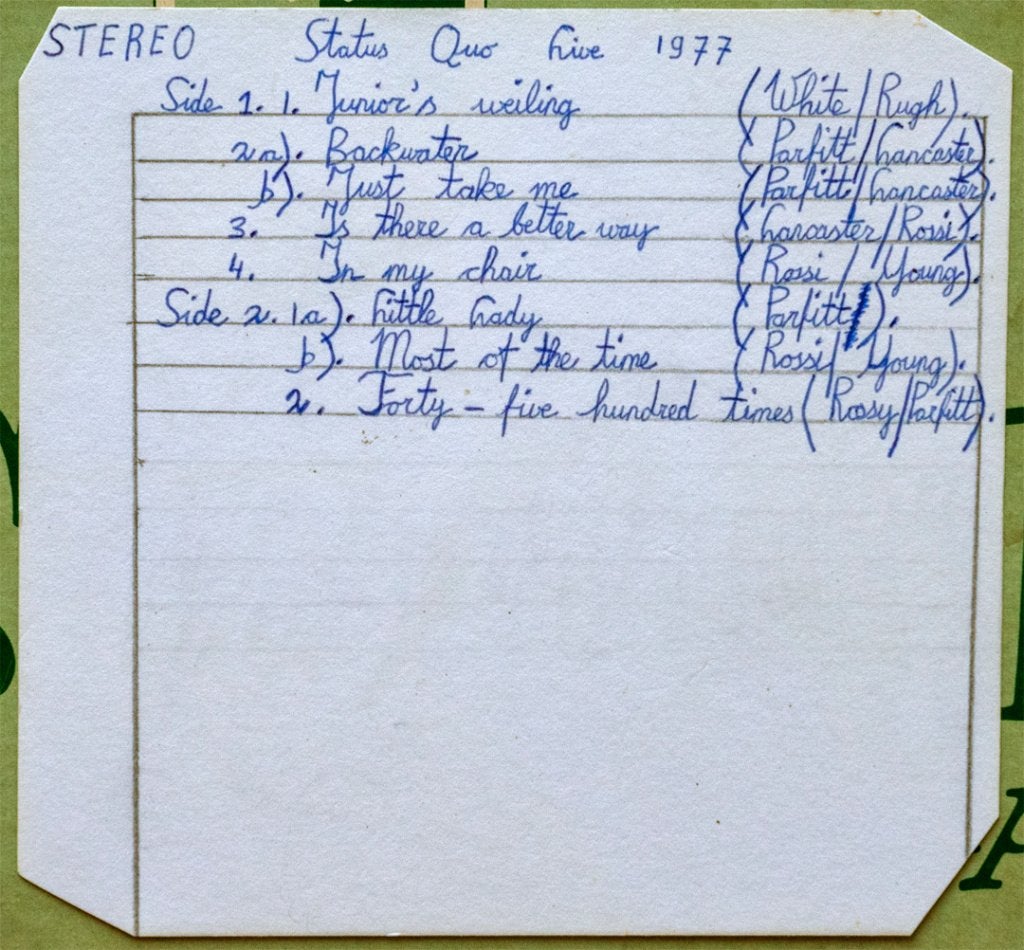 STEREO Status Quo Live 1977
Side 1. 1. Junior's weiling (White/Rugh).
2a). Backwater (Parfitt/Lancaster).
b). Just take me (Parfitt/Lancaster).
3. Is there a better way (Lancaster/Rossi).
4. In my chair (Rossi / Young).
Side 2. 1a). Little Lady (Parfitt).
b). Most of the time (Rossi/ Young).
2. Forty-five hundred times (Rossy/Parfitt).